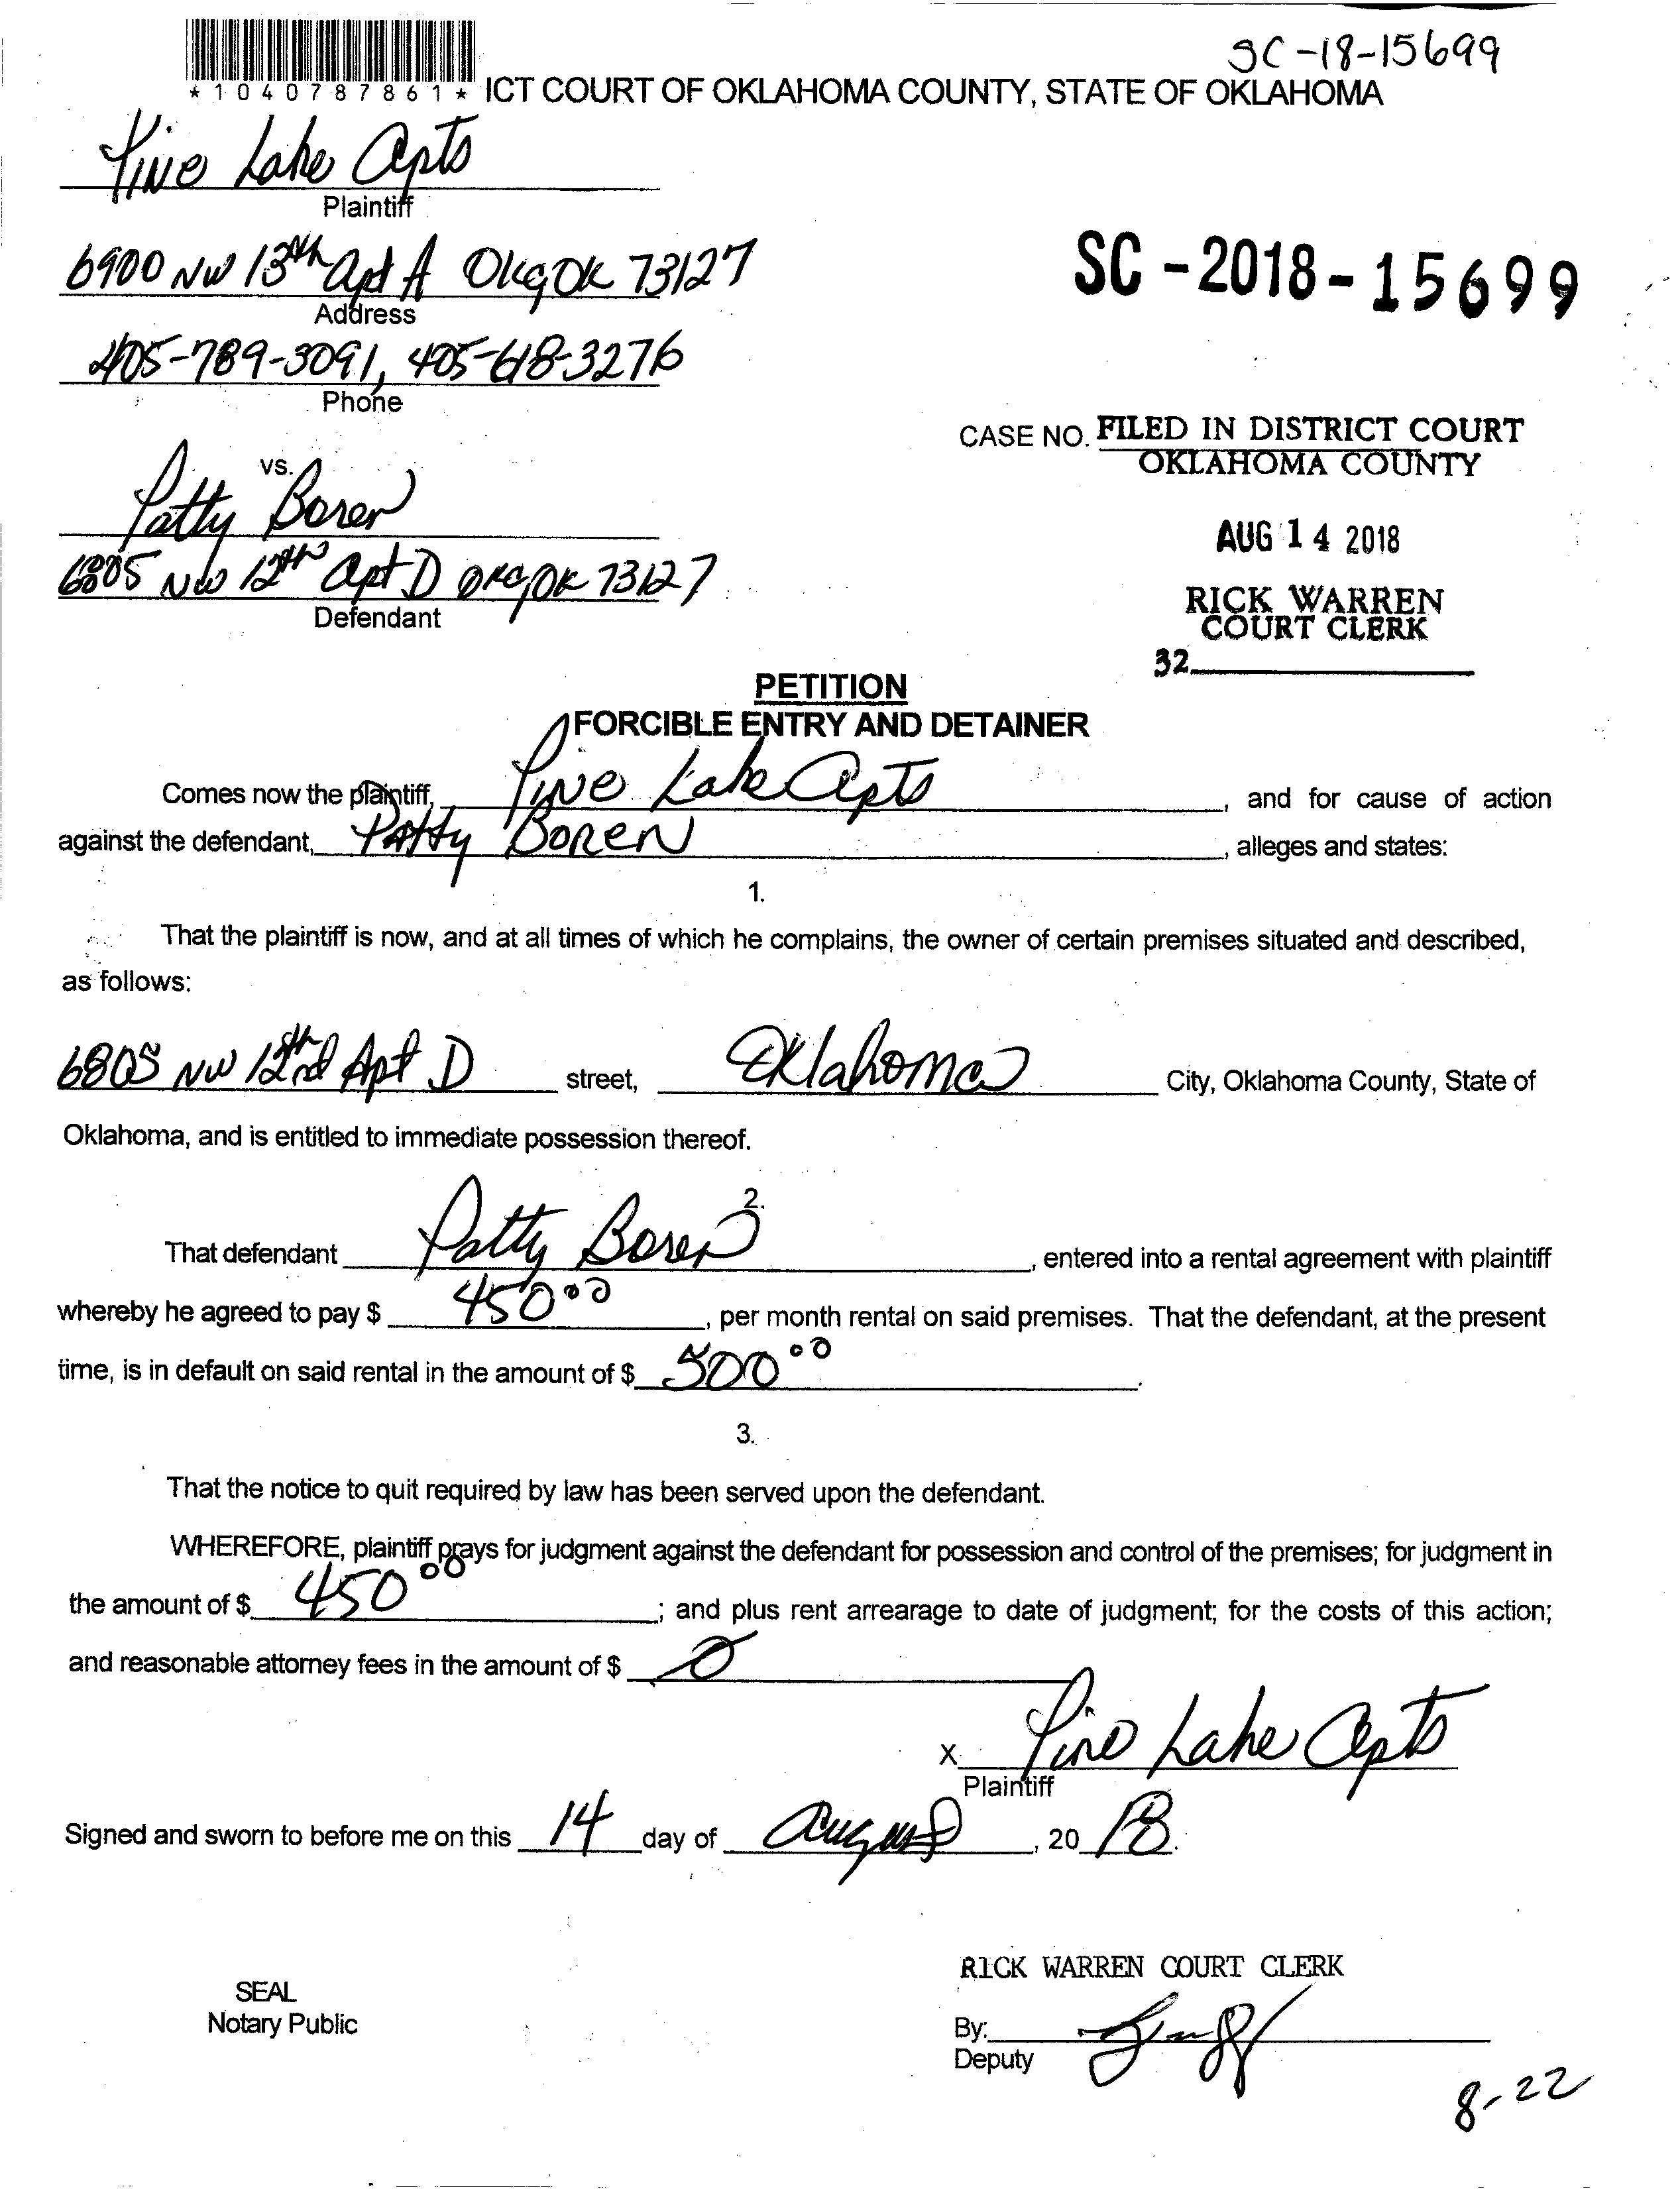 SC-18-15699
*1040787861* ICT COURT OF OKLAHOMA COUNTY, STATE OF OKLAHOMA
Pine Lake Apts
Plaintiff
6900 NW 13th Apt A OKC, OK 73127
Address
SC-2018-15699
405-789-3091, 405-618-3276
Phone
CASE NO. FILED IN DISTRICT COURT
OKLAHOMA COUNTY
vs.
Patty Boren
AUG 14 2018
6805 NW 12th Apt D OKC, OK 73127
Defendant
RICK WARREN
COURT CLERK
32
PETITION
FORCIBLE ENTRY AND DETAINER
Comes now the plaintiff, Pine Lake Apts, and for cause of action
against the defendant, Patty Boren, alleges and states:
1.
That the plaintiff is now, and at all times of which he complains, the owner of certain premises situated and described,
as follows:
6805 NW 12th Apt D street, Oklahoma City, Oklahoma County, State of
Oklahoma, and is entitled to immediate possession thereof.
2.
That defendant Patty Boren, entered into a rental agreement with plaintiff
whereby he agreed to pay $ 450 00, per month rental on said premises. That the defendant, at the present
time, is in default on said rental in the amount of $ 500 00.
3.
That the notice to quit required by law has been served upon the defendant.
WHEREFORE, plaintiff prays for judgment against the defendant for possession and control of the premises; for judgment in
the amount of $ 450 00; and plus rent arrearage to date of judgment; for the costs of this action;
and reasonable attorney fees in the amount of $ 0
X Pine Lake Apts
Plaintiff
Signed and sworn to before me on this 14 day of August, 20 18.
RICK WARREN COURT CLERK
SEAL
Notary Public
By:
Deputy
8-22